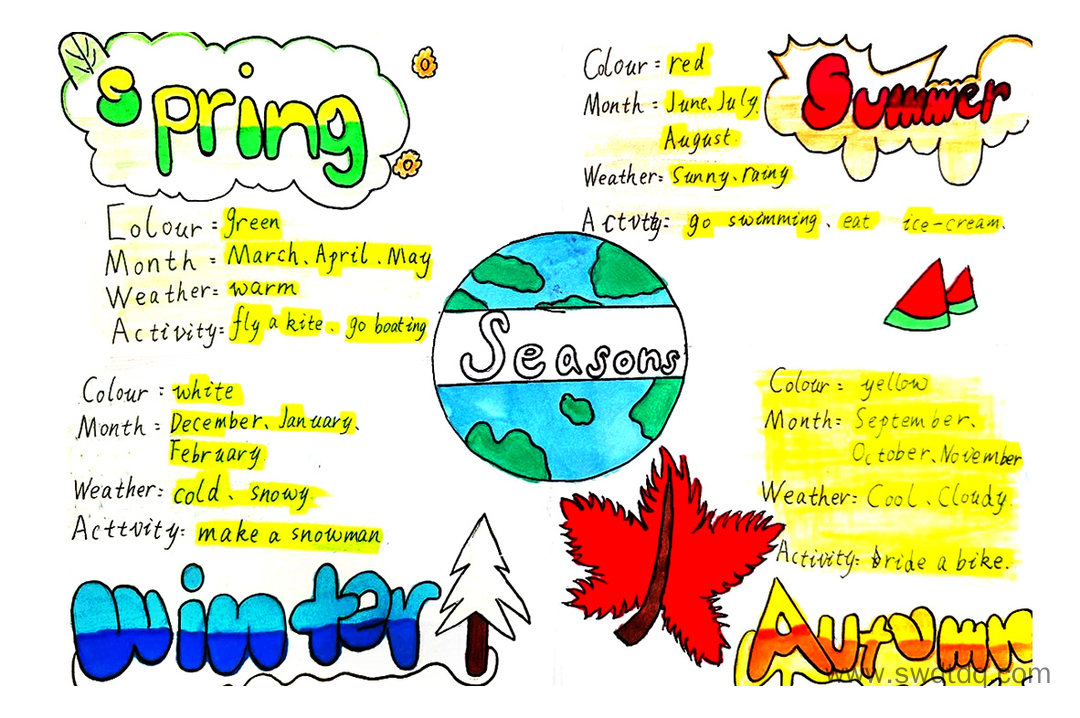 Spring
Colour = green
Month = March、April、May
Weather = warm
Activity = fly a kite、go boating
Summer
Colour = red
Month = June、July,
August.
Weather = sunny、rainy
Actvtty: go swimming、eat ice-cream.
Seasons
Colour : white
Month = December、January、
February
Weather: cold、snowy
Acttvity: make a snowman
Winter
Colour : yellow
Month: September、
October、November
Weather: Cool、Cloudy.
Activity: ride a bike.
Autumn
www.swdtdq.com